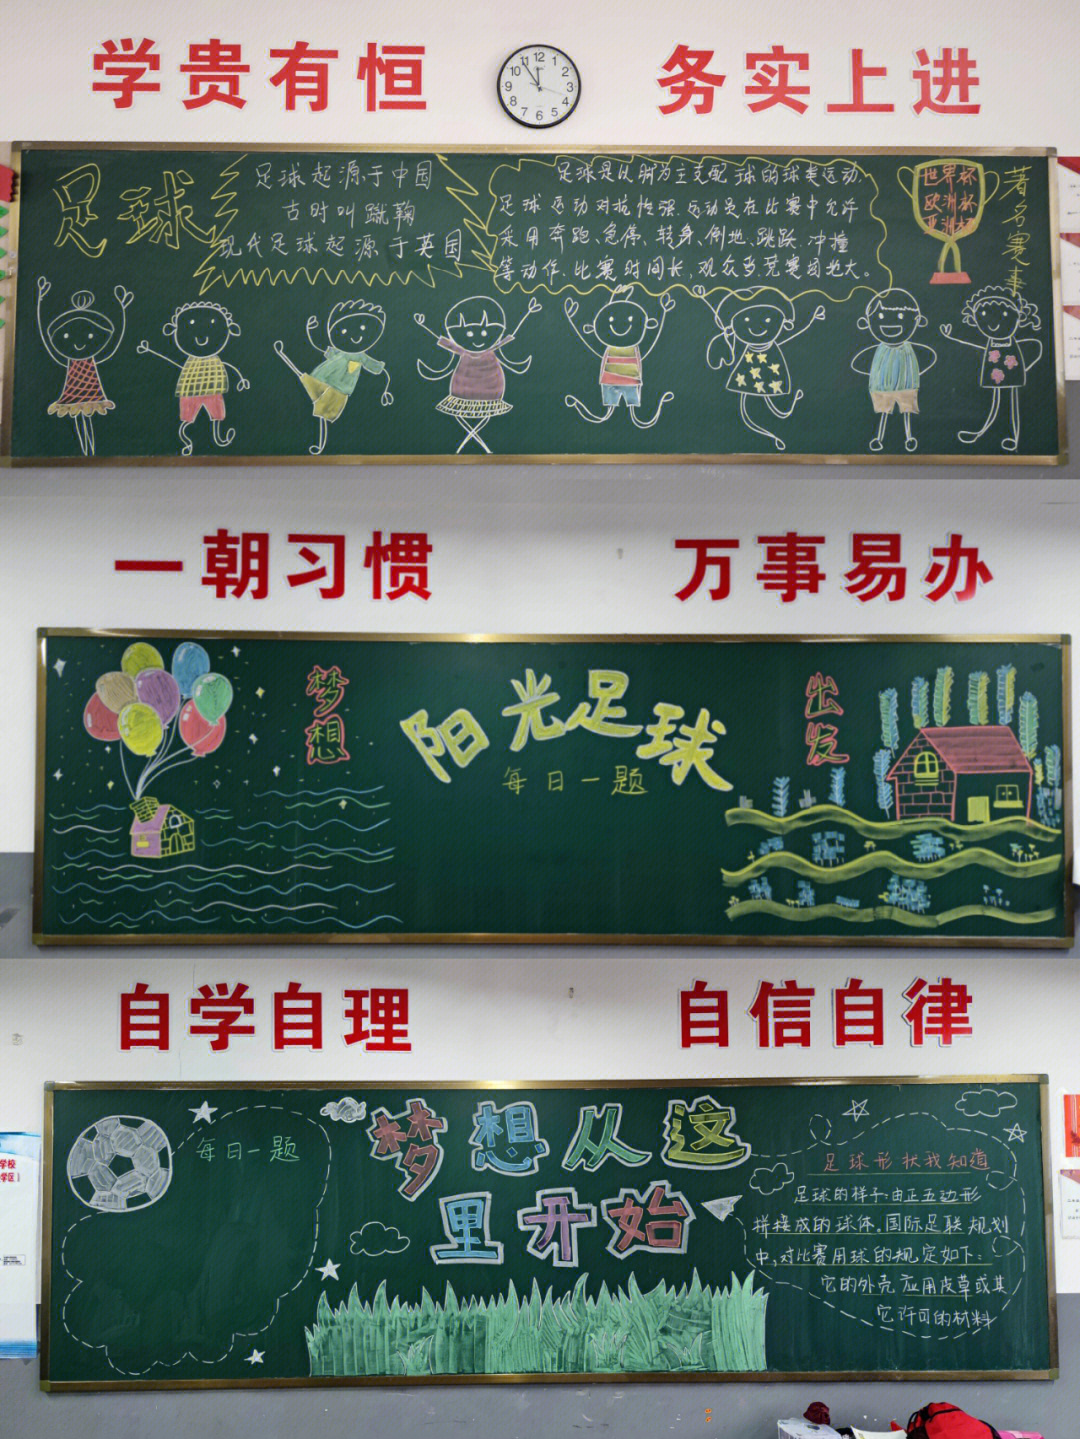 学贵有恒
务实上进
12
1
2
3
4
5
6
7
8
9
10
11
足球
足球起源于中国
古时叫蹴鞠
现代足球起源于英国
足球是以脚为主支配球的球类运动.
足球运动对抗性强.运动员在比赛中允许
采用奔跑、急停、转身、倒地、跳跃、冲撞
等动作.比赛时间长,观众多.竞赛场地大。
世界杯
欧洲杯
亚洲杯
著名赛事
一朝习惯
万事易办
梦想
阳光足球
每日一题
出发
自学自理
自信自律
每日一题
梦想从这
里开始
足球形状我知道
足球的样子:由正五边形
拼接成的球体。国际足联规划
中,对比赛用球的规定如下:
它的外壳应用皮草或其
它许可的材料
学校
学区)